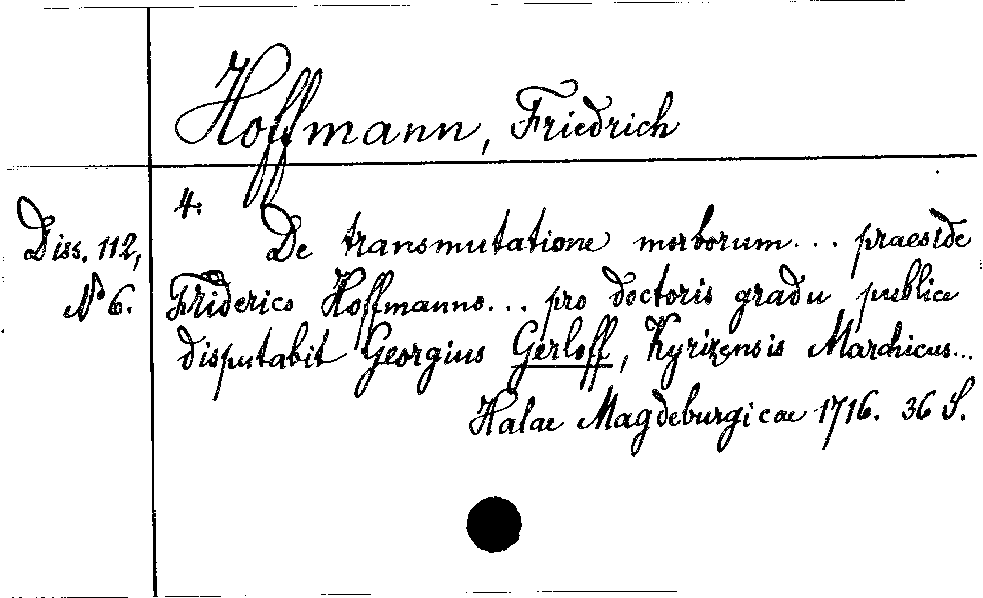 Hoffmann, Friedrich
4.
Diss. 112,
No 6.
De transmutatione morborum... praeside
Friderico Hoffmanno... pro doctoris gradu publice
disputabit Georgius Gerloff, Kyrizensis Marchicus...
Halae Magdeburgicae 1716. 36 S.